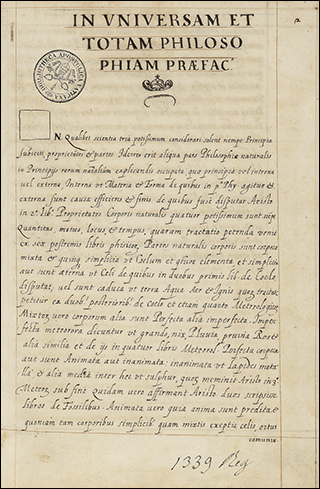 IN VNIVERSAM ET
TOTAM PHILOSO
PHIAM PRÆFAC.
2
BIBLIOTHECA APOSTOLICA VATICANA
N Qualibet scientia tria potissimum considerari solent nempe Principia
subiecti, proprietates et partes Ideo erit aliqua pars Philosophiæ naturalis
in Principijs rerum explicandis occupata, quæ principia vel interna
vel externa Interna vt Materia et Forma de quibus in pº Phy. agitur et
externa sunt causa efficiens et finis de quibus fusè disputat Aristo
in 2º lib. Proprietates Corporis naturalis quatuor potissimum sunt
Quantitas, motus, locus, et tempus, quarum tractatio petenda
ex sex postremis libris Partes naturalis corporis sunt corpora
mixta et simplicia vt Coelum et elementa et simplicia
aut sunt æterna vt Celi de quibus in duobus primis lib. de Coelo
disputat, vel sunt caduca vt Terra Aqua Aer et Ignis
petitur ex duob. posterioribus de Coelo et etiam quarto Meteorologicor.
Mixtor. vero corporum alia sunt Perfecta alia imperfecta.
meteorora dicuntur vt grando, nix, Pluuia, pruina Ros et
alia similia et de ijs in quatuor libris Meteorol. Perfecta corpora
aut sunt Animata aut inanimata: inanimata vt lapides metal
la et alia media inter hec vt sulphur, meminit Aristo in
Meteor. sub finē Quidam vero affirmant Aristo duos scripsisse
libros de Fossilibus. Animata vero quia anima sunt prædita
quoniam tam corporibus simplicib. quam mixtis exceptis celis ortus
communis
1339 Reg